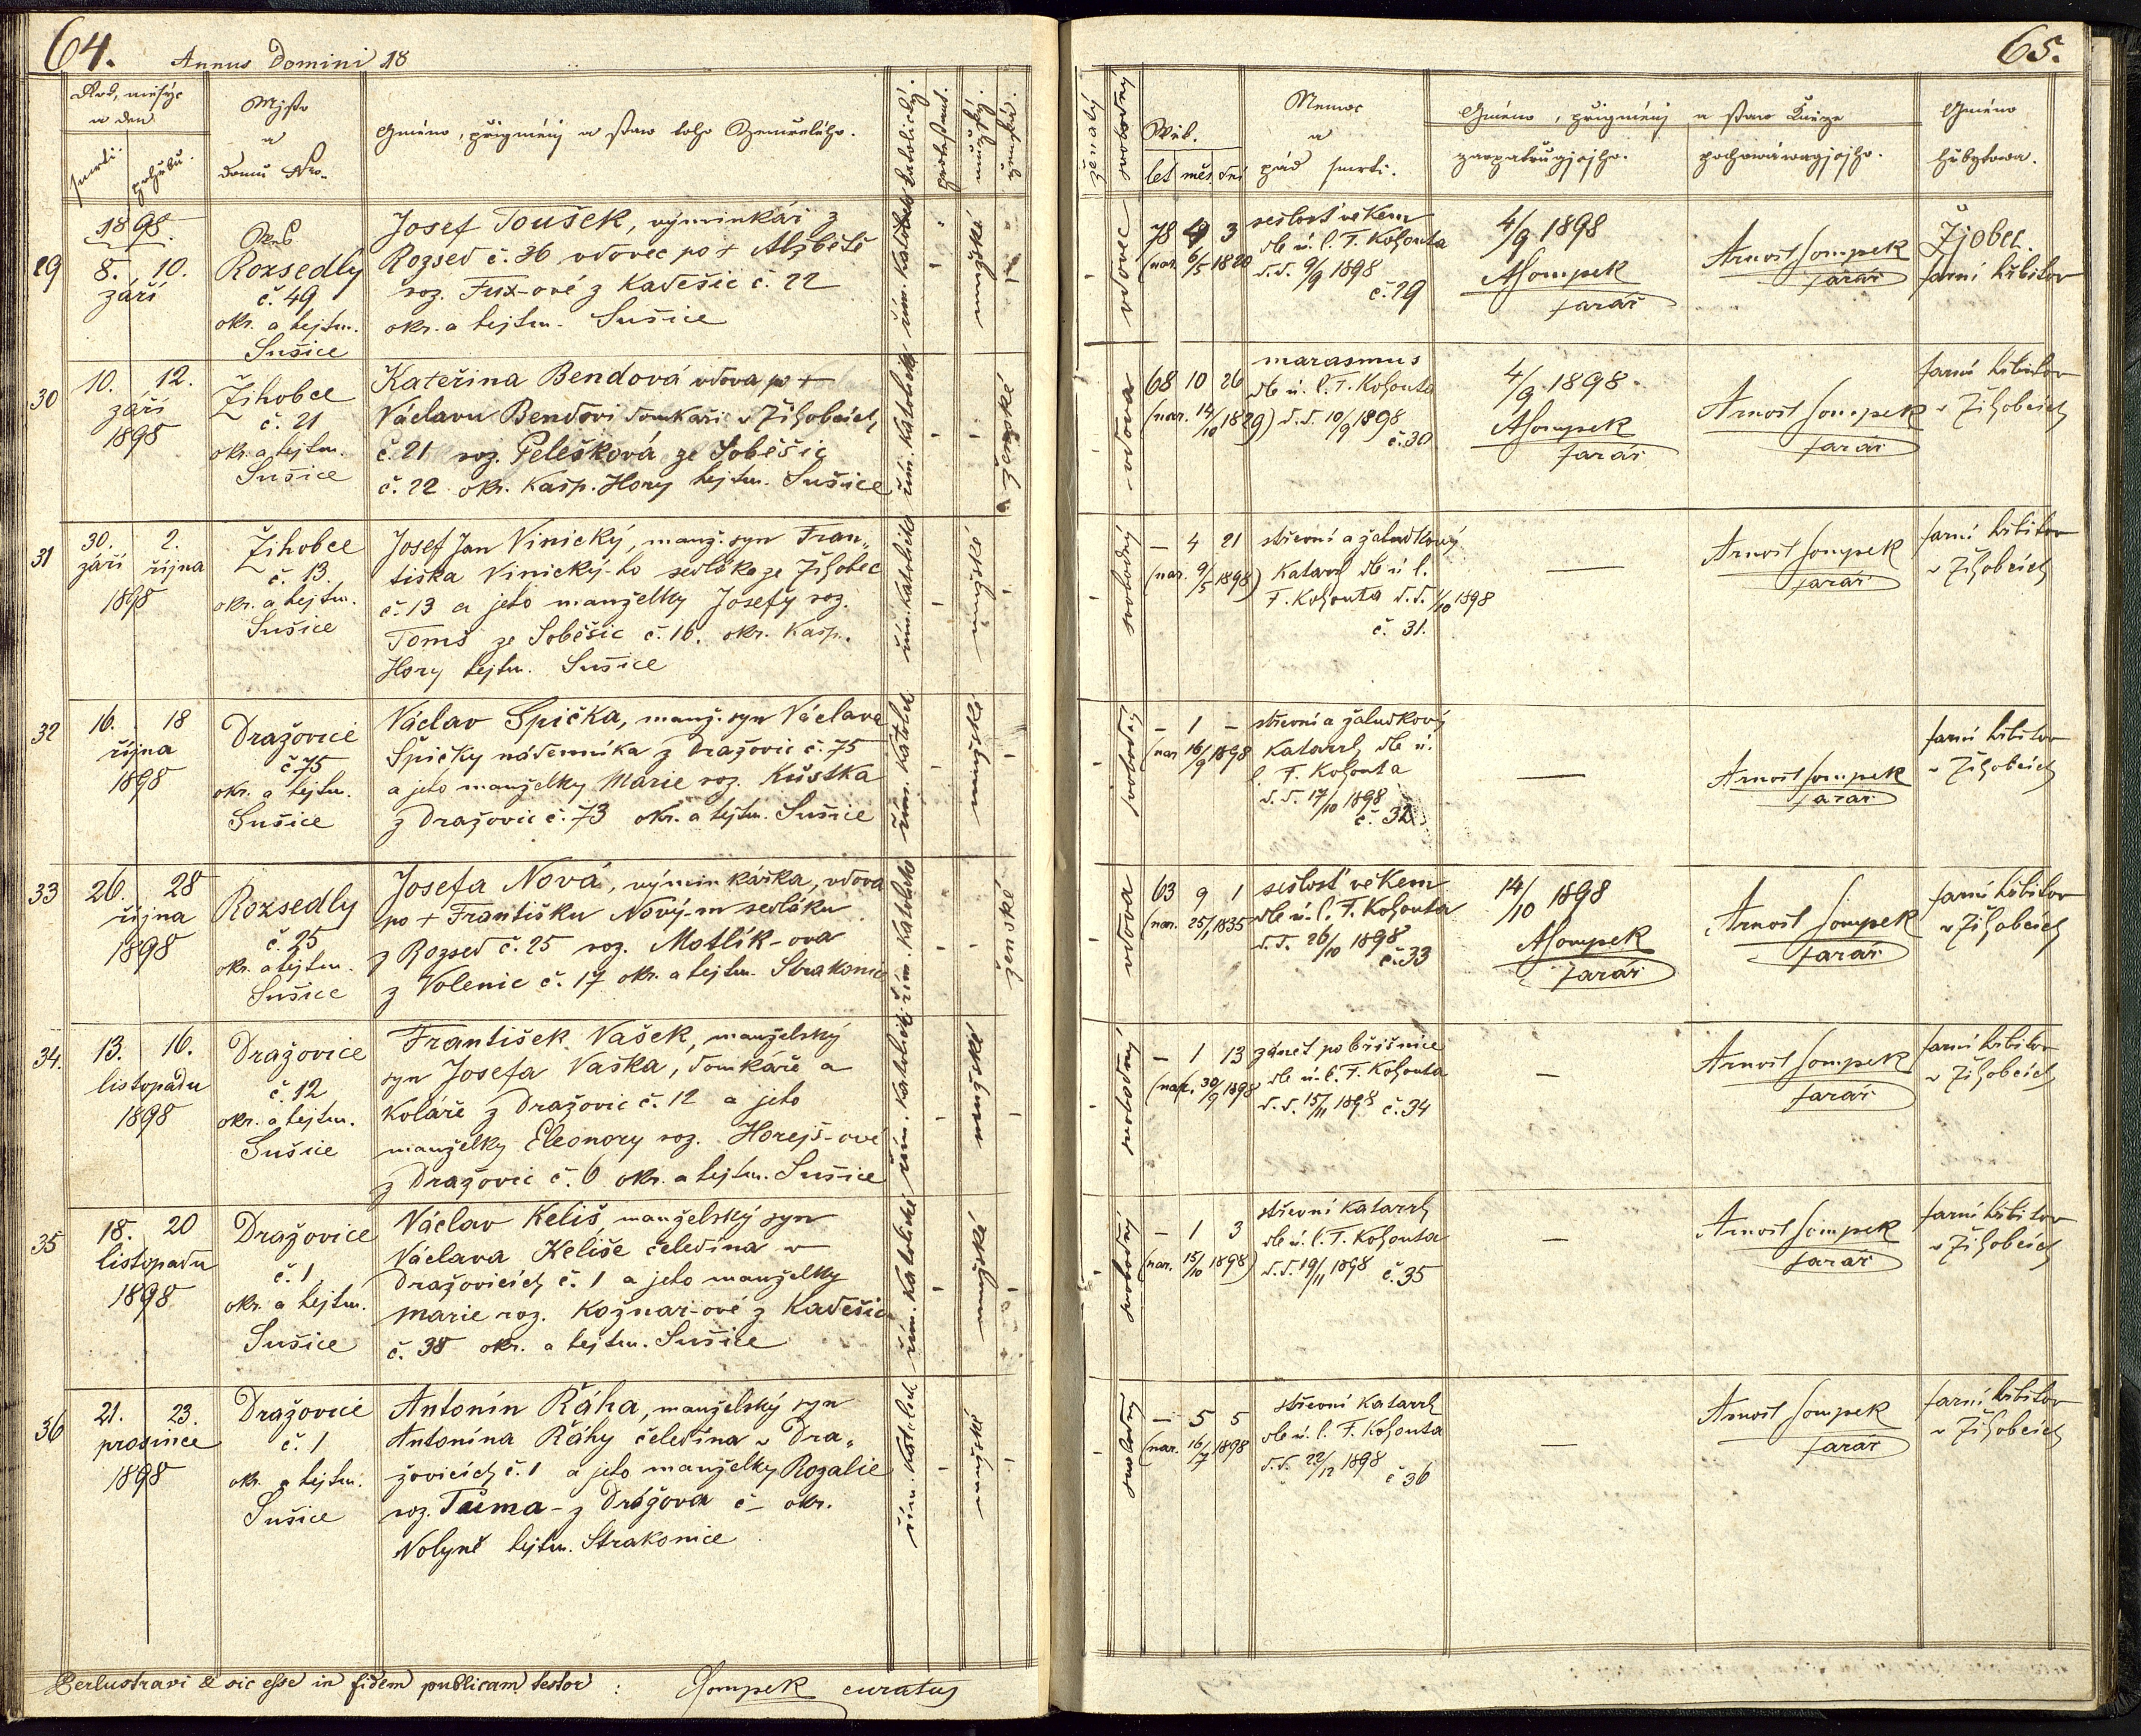 64.
Annus Domini 18
Rok, měsýc
a den
smrti.
pohřbu.
Mjsto
a
domu Nro.
Gméno, přigmenj a staw toho Zemřelého.
katolický.
protestant.
mužský.
ženská.
29
1898.
8. 10.
září
Rozsedly
č. 49
okr. a hejtm.
Sušice
Josef Toušek, výminkář z
Rozsed č. 36 vdovec po + Alžbětě
roz. Fux-ové z Kadešic č. 22
okr. a hejtm. Sušice
mužské
30
10. 12.
září
1898
Žihobce
č. 21
okr. a hejtm.
Sušice
Kateřina Bendová vdova po +
Václavu Bendovi domkáři v Žihobcích
č. 21 roz. Pelešková ze Soběšic
č. 22 okr. Kašp. Hory hejtm. Sušice
řím. katolické
ženské
31
30. 2.
září října
1898
Žihobce
č. 13.
okr. a hejtm.
Sušice
Josef Jan Vinický, manž. syn Fran„
tiška Vinický-ho sedláka ze Žihobec
č. 13 a jeho manželky Josefy roz.
Tomš ze Soběšic č. 16. okr. Kašp.
Hory hejtm. Sušice
mužské
32
16. 18
října
1898
Dražovice
č 75
okr. a hejtm.
Sušice
Václav Spička, manž. syn Václava
Špičky nádenníka z Dražovic č. 75
a jeho manželky Marie roz. Kůstka
z Dražovic č. 73 okr. a hejtm. Sušice
mužské
33
26. 28
října
1898
Rozsedly
č. 25
okr. a hejtm.
Sušice
Josefa Nová, výminkářka, vdova
po + Františku Nový-m sedláku
z Rozsed č. 25 roz. Motlík-ova
z Volenic č. 17 okr. a hejtm. Strakonic
ženské
34.
13. 16.
listopadu
1898
Dražovice
č. 12
okr. a hejtm.
Sušice
František Vašek, manželský
syn Josefa Vaška, domkáře a
koláře z Dražovic č. 12 a jeho
manželky Eleonory roz. Horejš-ové
z Dražovic č. 6 okr. a hejtm. Sušice
mužské
35
18. 20
listopadu
1898
Dražovice
č. 1
okr. a hejtm.
Sušice
Václav Keliš, manželský syn
Václava Keliše čeledína v
Dražovicích č. 1 a jeho manželky
Marie roz. Kožnar-ové z Kadešic
č. 38 okr. a hejtm. Sušice
řím. katolické
mužské
36
21. 23.
prosince
1898
Dražovice
č. 1
okr. a hejtm.
Sušice
Antonín Řáha, manželský syn
Antonína Řáhy čeledína v Dra„
žovicích č. 1 a jeho manželky Rozalie
roz. Tůma - z Drážova č - okr.
Volyně hejtm. Strakonice
mužské
Perlustravi & sic esse in fidem publicam testor :
ASompek curatus
65.
ženatý
svobodný
Wěk.
let měs. dní
Nemoc
a
pád smrti.
Gméno, přigmenj a staw Kněze
zaopatřugjcjho.
pochowáwagjcjho.
Gméno
hřbytowa.
vdovec
78 4 3
(nar. 6/5 1820
sešlost věkem
dle ú. l. F. Kohouta
d.d. 9/9 1898
č. 29
4/9 1898
ASompek
farář
Arnošt Sompek
farář
Žjobec
farní hřbitov
vdova
68 10 26
(nar. 14/10 1829)
marasmus
dle ú. l. F. Kohouta
d.d. 10/9 1898
č. 30
4/9 1898.
ASompek
farář
Arnošt Sompek
farář
farní hřbitov
v Žihobcích
svobodný
— 4 21
(nar. 9/5 1898)
střevní a žaludkový
katarrh dle ú l.
F. Kohouta d.d. 1/10 1898
č. 31.
—
Arnošt Sompek
farář
farní hřbitov
v Žihobcích
svobodný
— 1 —
(nar 16/9 1898
střevní a žaludkový
katarrh dle ú.
l. F. Kohouta
d.d. 17/10 1898
č. 32
—
Arnošt Sompek
farář
farní hřbitov
v Žihobcích
vdova
63 9 1
(nar. 25/1 1835
sešlosť věkem
dle ú. l. F. Kohouta
d.d. 26/10 1898
č. 33
14/10 1898
ASompek
farář
Arnošt Sompek
farář
farní hřbitov
v Žihobcích
svobodný
— 1 13
(nar. 30/9 1898
zánět pobřišnice
dle ú. l. F. Kohouta
d.d. 15/11 1898 č. 34
—
Arnošt Sompek
farář
farní hřbitov
v Žihobcích
svobodný
— 1 3
(nar. 15/10 1898)
střevní katarrh
dle ú. l. F. Kohouta
d.d. 19/11 1898 č. 35
—
Arnošt Sompek
farář
farní hřbitov
v Žihobcích
svobodný
— 5 5
(nar. 16/7 1898
střevní katarrh
dle ú. l. F. Kohouta
d.d. 22/12 1898
č 36
—
Arnošt Sompek
farář
farní hřbitov
v Žihobcích